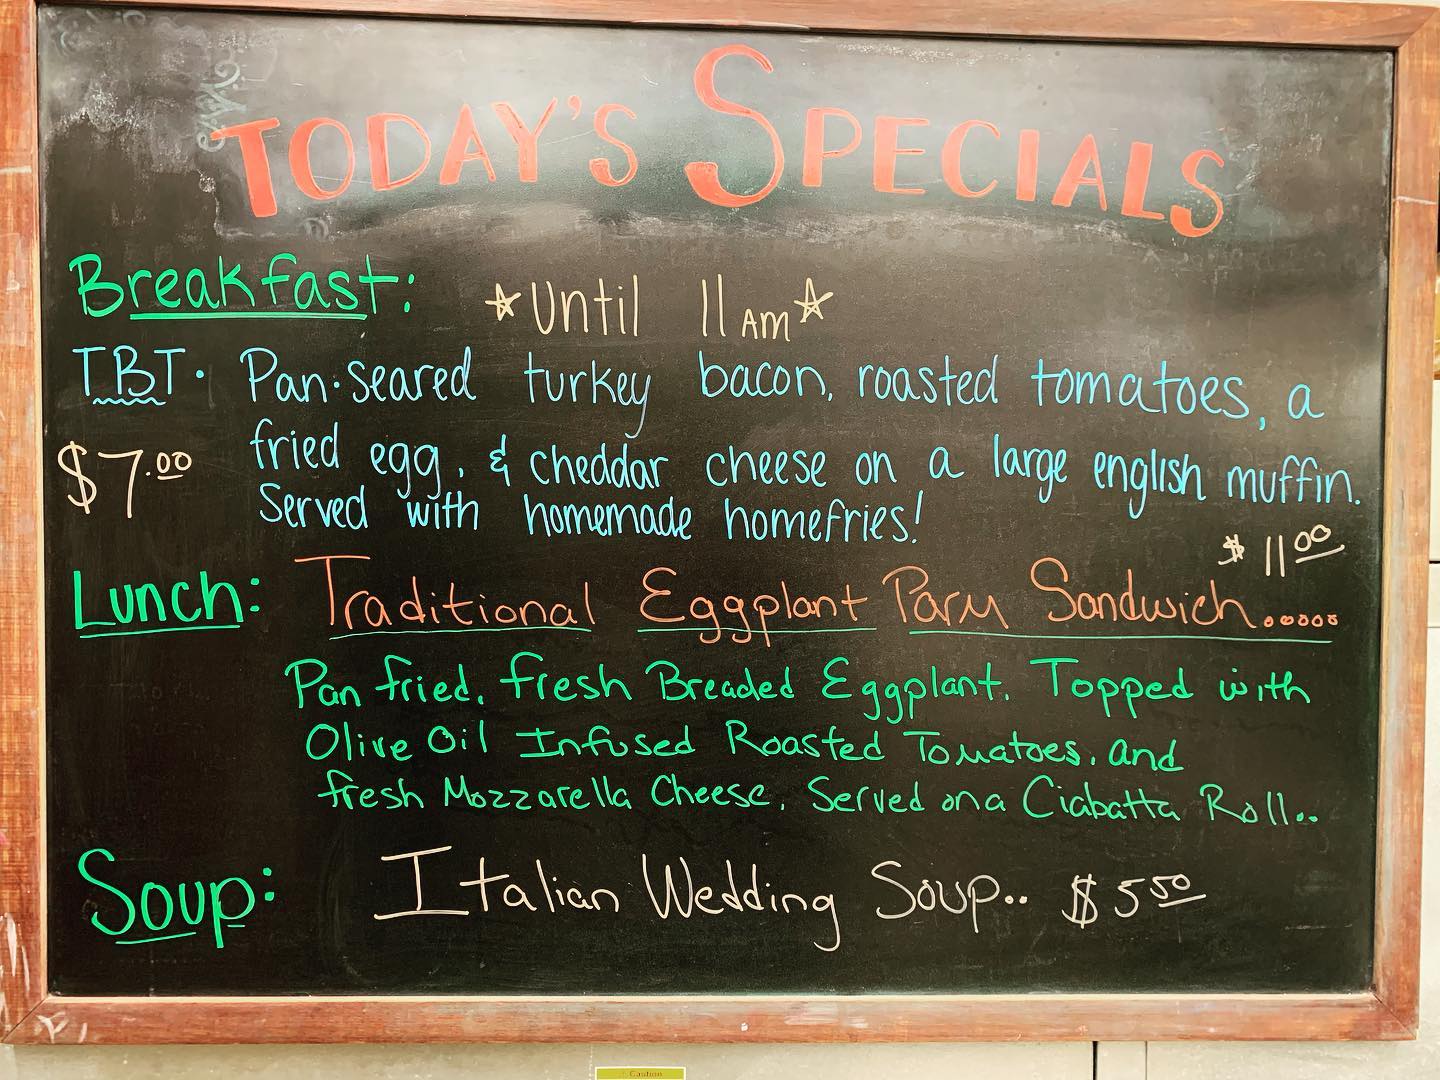 TODAY'S SPECIALS
Breakfast: ☆Until 11 AM☆
TBT. Pan-seared turkey bacon, roasted tomatoes, a
$7.00 fried egg, & cheddar cheese on a large english muffin.
Served with homemade homefries!
$11.00
Lunch: Traditional Eggplant Parm Sandwich......
Pan fried, fresh Breaded Eggplant. Topped with
Olive Oil Infused Roasted Tomatoes, and
fresh Mozzarella Cheese. Served on a Ciabatta Roll..
Soup: Italian Wedding Soup.. $5.50
Caution